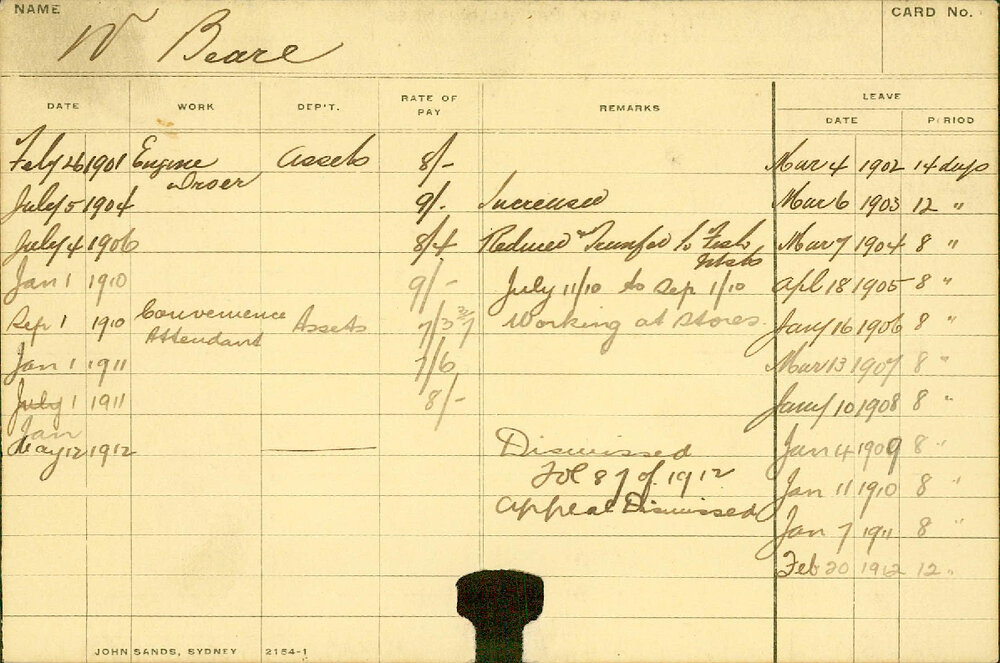 NAME
CARD No.
W Beare
DATE WORK DEP'T. RATE OF PAY REMARKS LEAVE
DATE PERIOD
Feby 26 1901 Engine Driver Assets 8/- Mar 4 1902 14 days
July 5 1904 9/- Increased Mar 6 1903 12 "
July 4 1906 8/4 Reduced & Transfer to Mar 7 1904 8 "
Jan 1 1910 9/- July 11/10 to Sep 1/10 Apl 18 1905 8 "
Sep 1 1910 Convenience Attendant Assets 7/3 Working at Stores. Jany 16 1906 8 "
Jan 1 1911 7/6 Mar 13 1907 8 "
July 1 1911 8/- Jany 10 1908 8 "
Jan
May 12 1912 Dismissed Jan 4 1909 8 "
Fol 87 of 1912 Jan 11 1910 8 "
Appeal Dismissed Jan 7 1911 8 "
Feb 20 1912 12 "
JOHN SANDS, SYDNEY 2154-1